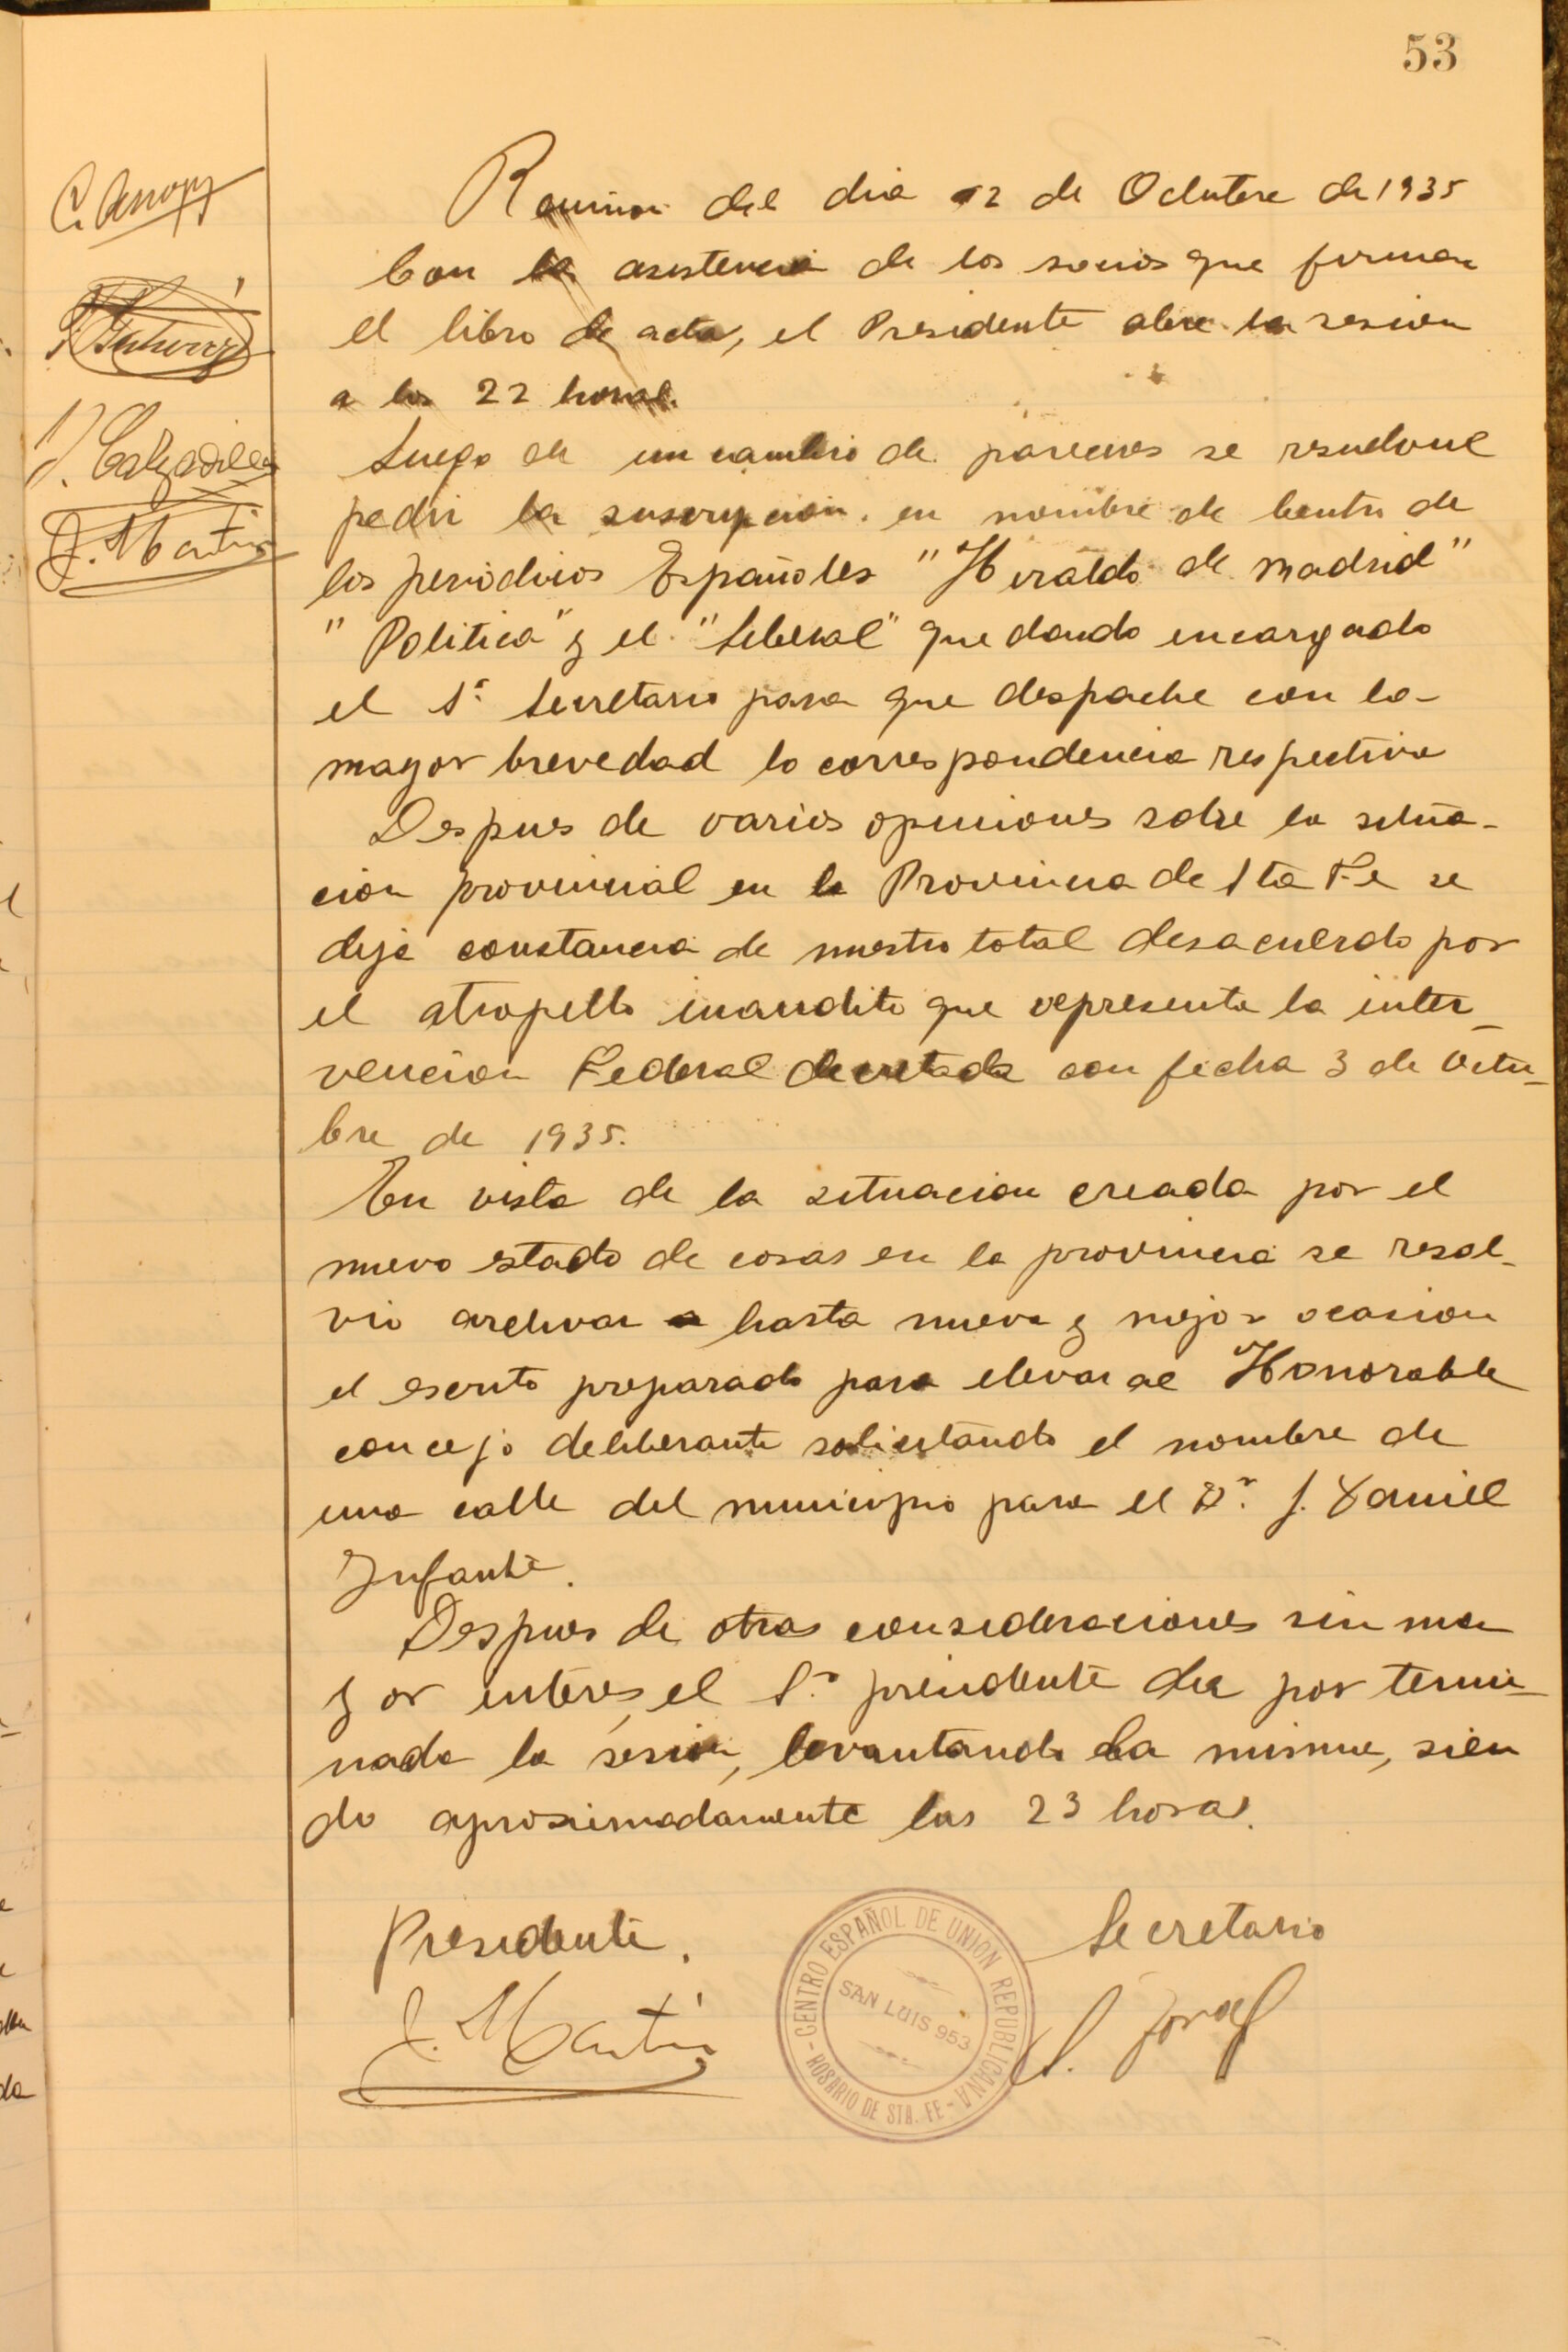 53
Reunion del dia 12 de Octubre de 1935
Con la asistencia de los socios que firman
el libro de acta, el Presidente abre la sesion
a las 22 horas.
Luego de un cambio de pareceres se resuelve
pedir la suscripcion en nombre de Centro de
los periodicos Españoles "Heraldo de Madrid"
"Politica" y el "Liberal" quedando encargado
el Sr. Secretario para que despache con la
mayor brevedad la correspondencia respectiva
Despues de varios opiniones sobre la situa-
cion provincial en la Provincia de Sta Fe se
deja constancia de nuestro total desacuerdo por
el atropello inaudito que representa la inter-
vencion Federal decretada con fecha 3 de Octu-
bre de 1935.
En vista de la situacion creada por el
nuevo estado de cosas en la provincia se resol-
vio archivar a hasta nueva y mejor ocasion
el escrito preparado para elevar al Honorable
concejo deliberante solicitando el nombre de
una calle del municipio para el Dr. J. Daniel
Infante.
Despues de otras consideraciones sin ma
yor interes, el Sr. presidente da por termi-
nada la sesion, levantando la misma, sien
do aproximadamente las 23 horas.
Presidente.
Secretario
J. Martin
CENTRO ESPAÑOL DE UNION REPUBLICANA
SAN LUIS 953
ROSARIO DE STA. FE
J. Calzadilla
J. Martin